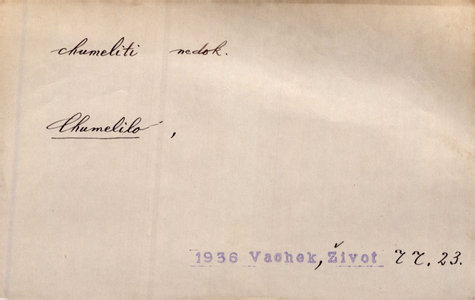 chumeliti nedok.
Chumelilo,
1936 Vachek, Život 77.23.